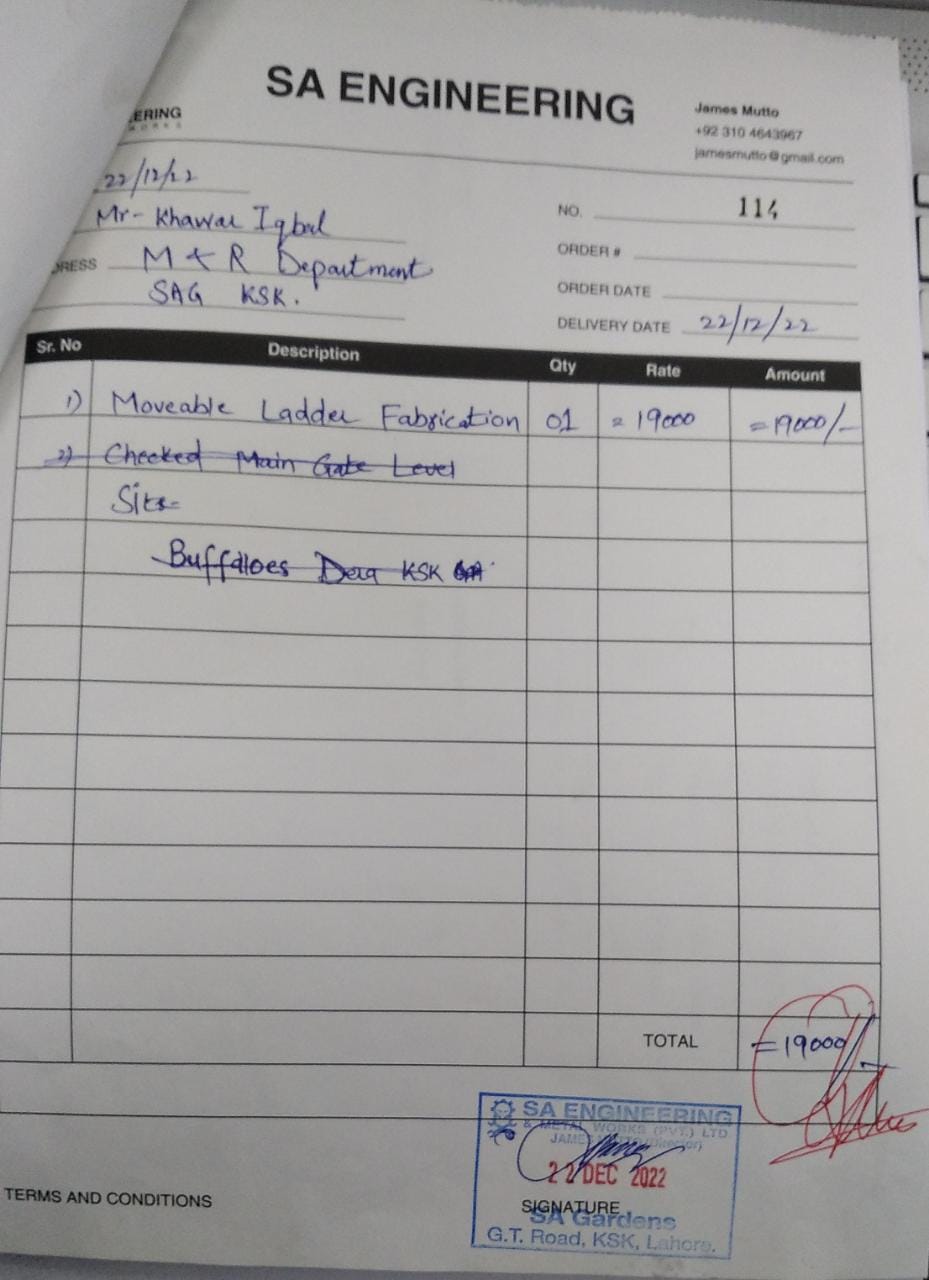 SA ENGINEERING
ERING
WORKS
James Mutto
+92 310 4643967
jamesmutto@gmail.com
22/12/22
Mr- Khawar Iqbal
RESS M & R Department
SAG KSK.
NO. 114
ORDER #
ORDER DATE
DELIVERY DATE 22/12/22
Sr. No Description Qty Rate Amount
1) Moveable Ladder Fabrication 01 = 19000 = 19000/-
2) Checked Main Gate Level
Site
Buffaloes Dera KSK
TOTAL = 19000/
SA ENGINEERING
& METAL WORKS (PVT.) LTD
JAMES MUTTO (Director)
22 DEC 2022
SIGNATURE
SA Gardens
G.T. Road, KSK, Lahore.
TERMS AND CONDITIONS